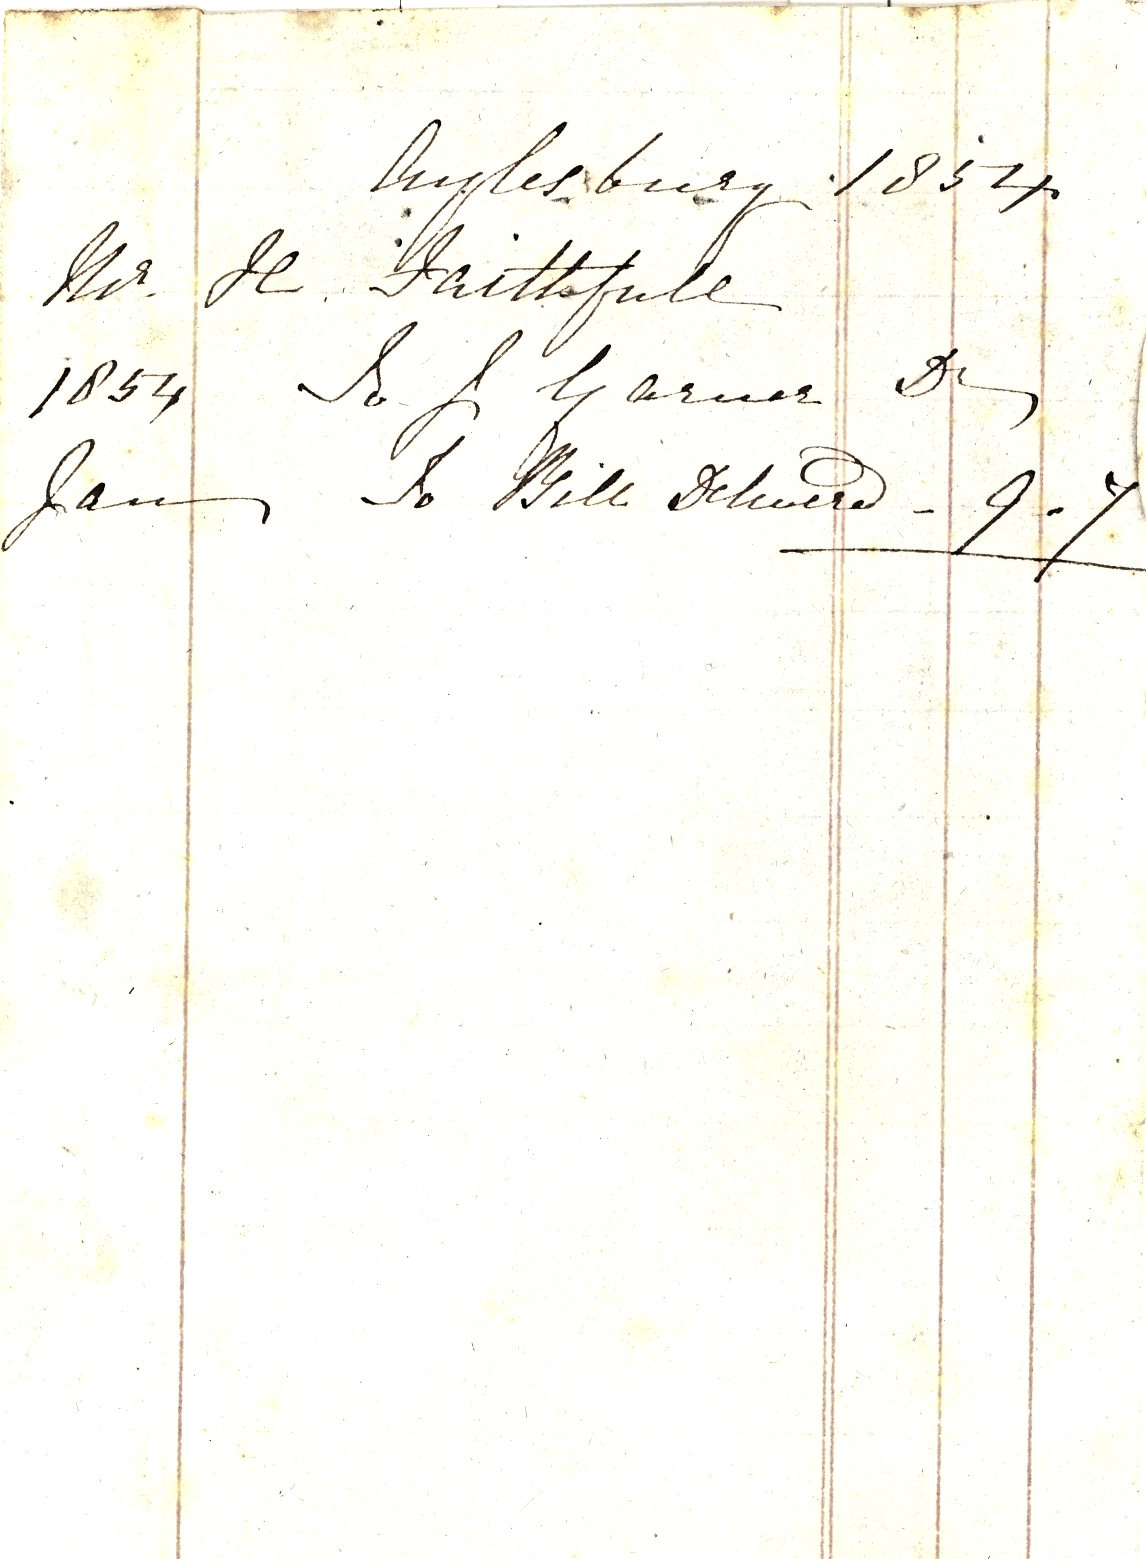 Aylesbury 1854
Mr. H. Faithfull
1854 To J Garner Dr
Jan To Bill Deliverd - 9 - 7